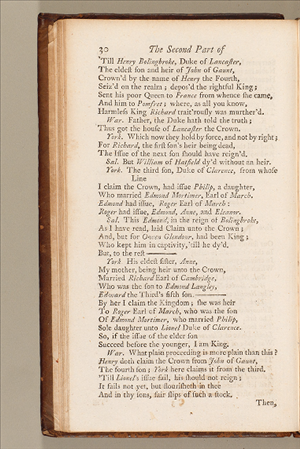 30 The Second Part of
'Till Henry Bolingbroke, Duke of Lancaster,
The eldest son and heir of John of Gaunt,
Crown'd by the name of Henry the Fourth,
Seiz'd on the realm; depos'd the rightful King;
Sent his poor Queen to France from whence she came,
And him to Pomfret; where, as all you know,
Harmless King Richard trait'rously was murther'd.
War. Father, the Duke hath told the truth;
Thus got the house of Lancaster the Crown.
York. Which now they hold by force, and not by right;
For Richard, the first son's heir being dead,
The Issue of the next son should have reign'd.
Sal. But William of Hatfield dy'd without an heir.
York. The third son, Duke of Clarence, from whose
Line
I claim the Crown, had issue Philip, a daughter,
Who married Edmond Mortimer, Earl of March.
Edmond had issue, Roger Earl of March:
Roger had issue, Edmond, Anne, and Eleanor.
Sal. This Edmond, in the reign of Bolingbroke,
As I have read, laid Claim unto the Crown;
And, but for Owen Glendour, had been King;
Who kept him in captivity, 'till he dy'd.
But, to the rest——
York. His eldest sister, Anne,
My mother, being heir unto the Crown,
Married Richard Earl of Cambridge,
Who was the son to Edmond Langley,
Edward the Third's fifth son.——
By her I claim the Kingdom; she was heir
To Roger Earl of March, who was the son
Of Edmond Mortimer, who married Philip,
Sole daughter unto Lionel Duke of Clarence.
So, if the issue of the elder son
Succeed before the younger, I am King.
War. What plain proceeding is more plain than this?
Henry doth claim the Crown from John of Gaunt,
The fourth son; York here claims it from the third.
'Till Lionel's issue fail, his should not reign;
It fails not yet, but flourisheth in thee
And in thy sons, fair slips of such a stock.
Then,